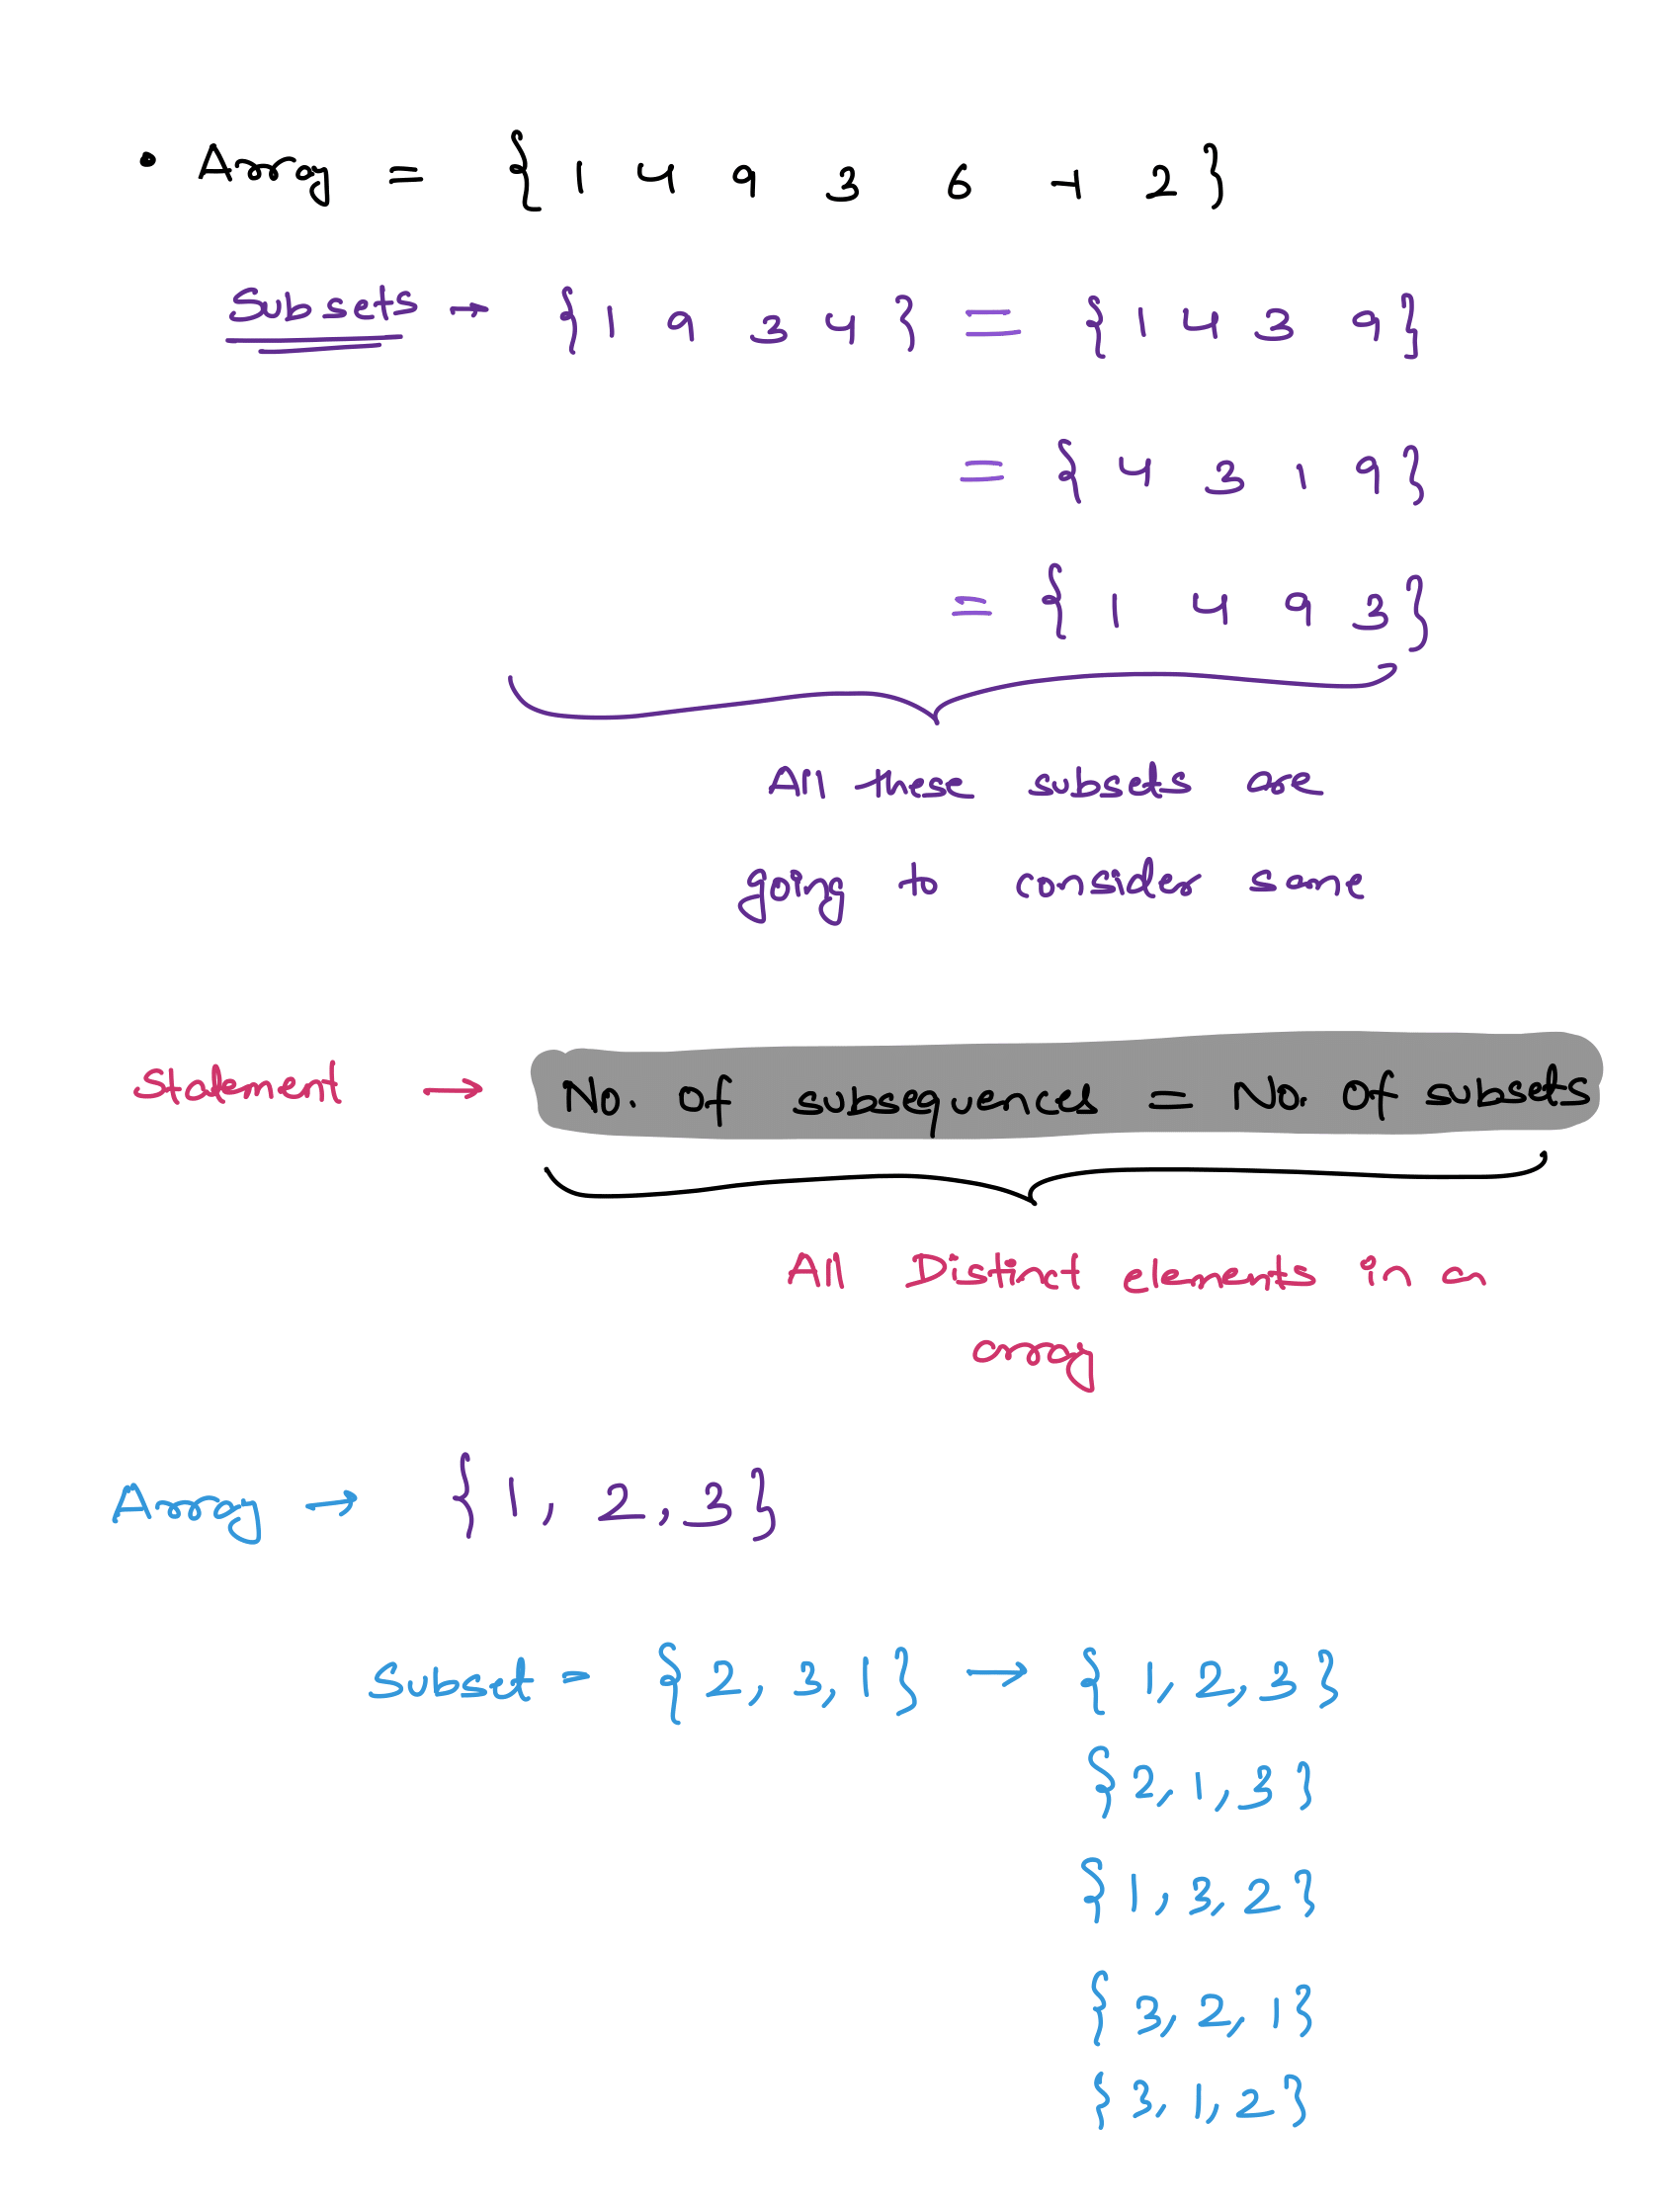 • Array = { 1 4 9 3 6 -1 2 }
Subsets → { 1 9 3 4 } = { 1 4 3 9 }
= { 4 3 1 9 }
= { 1 4 9 3 }
All these subsets are
going to consider same
Statement → No. Of subsequences = No. Of subsets
All Distinct elements in an
array
Array → { 1, 2, 3 }
Subset = { 2, 3, 1 } → { 1, 2, 3 }
{ 2, 1, 3 }
{ 1, 3, 2 }
{ 3, 2, 1 }
{ 3, 1, 2 }